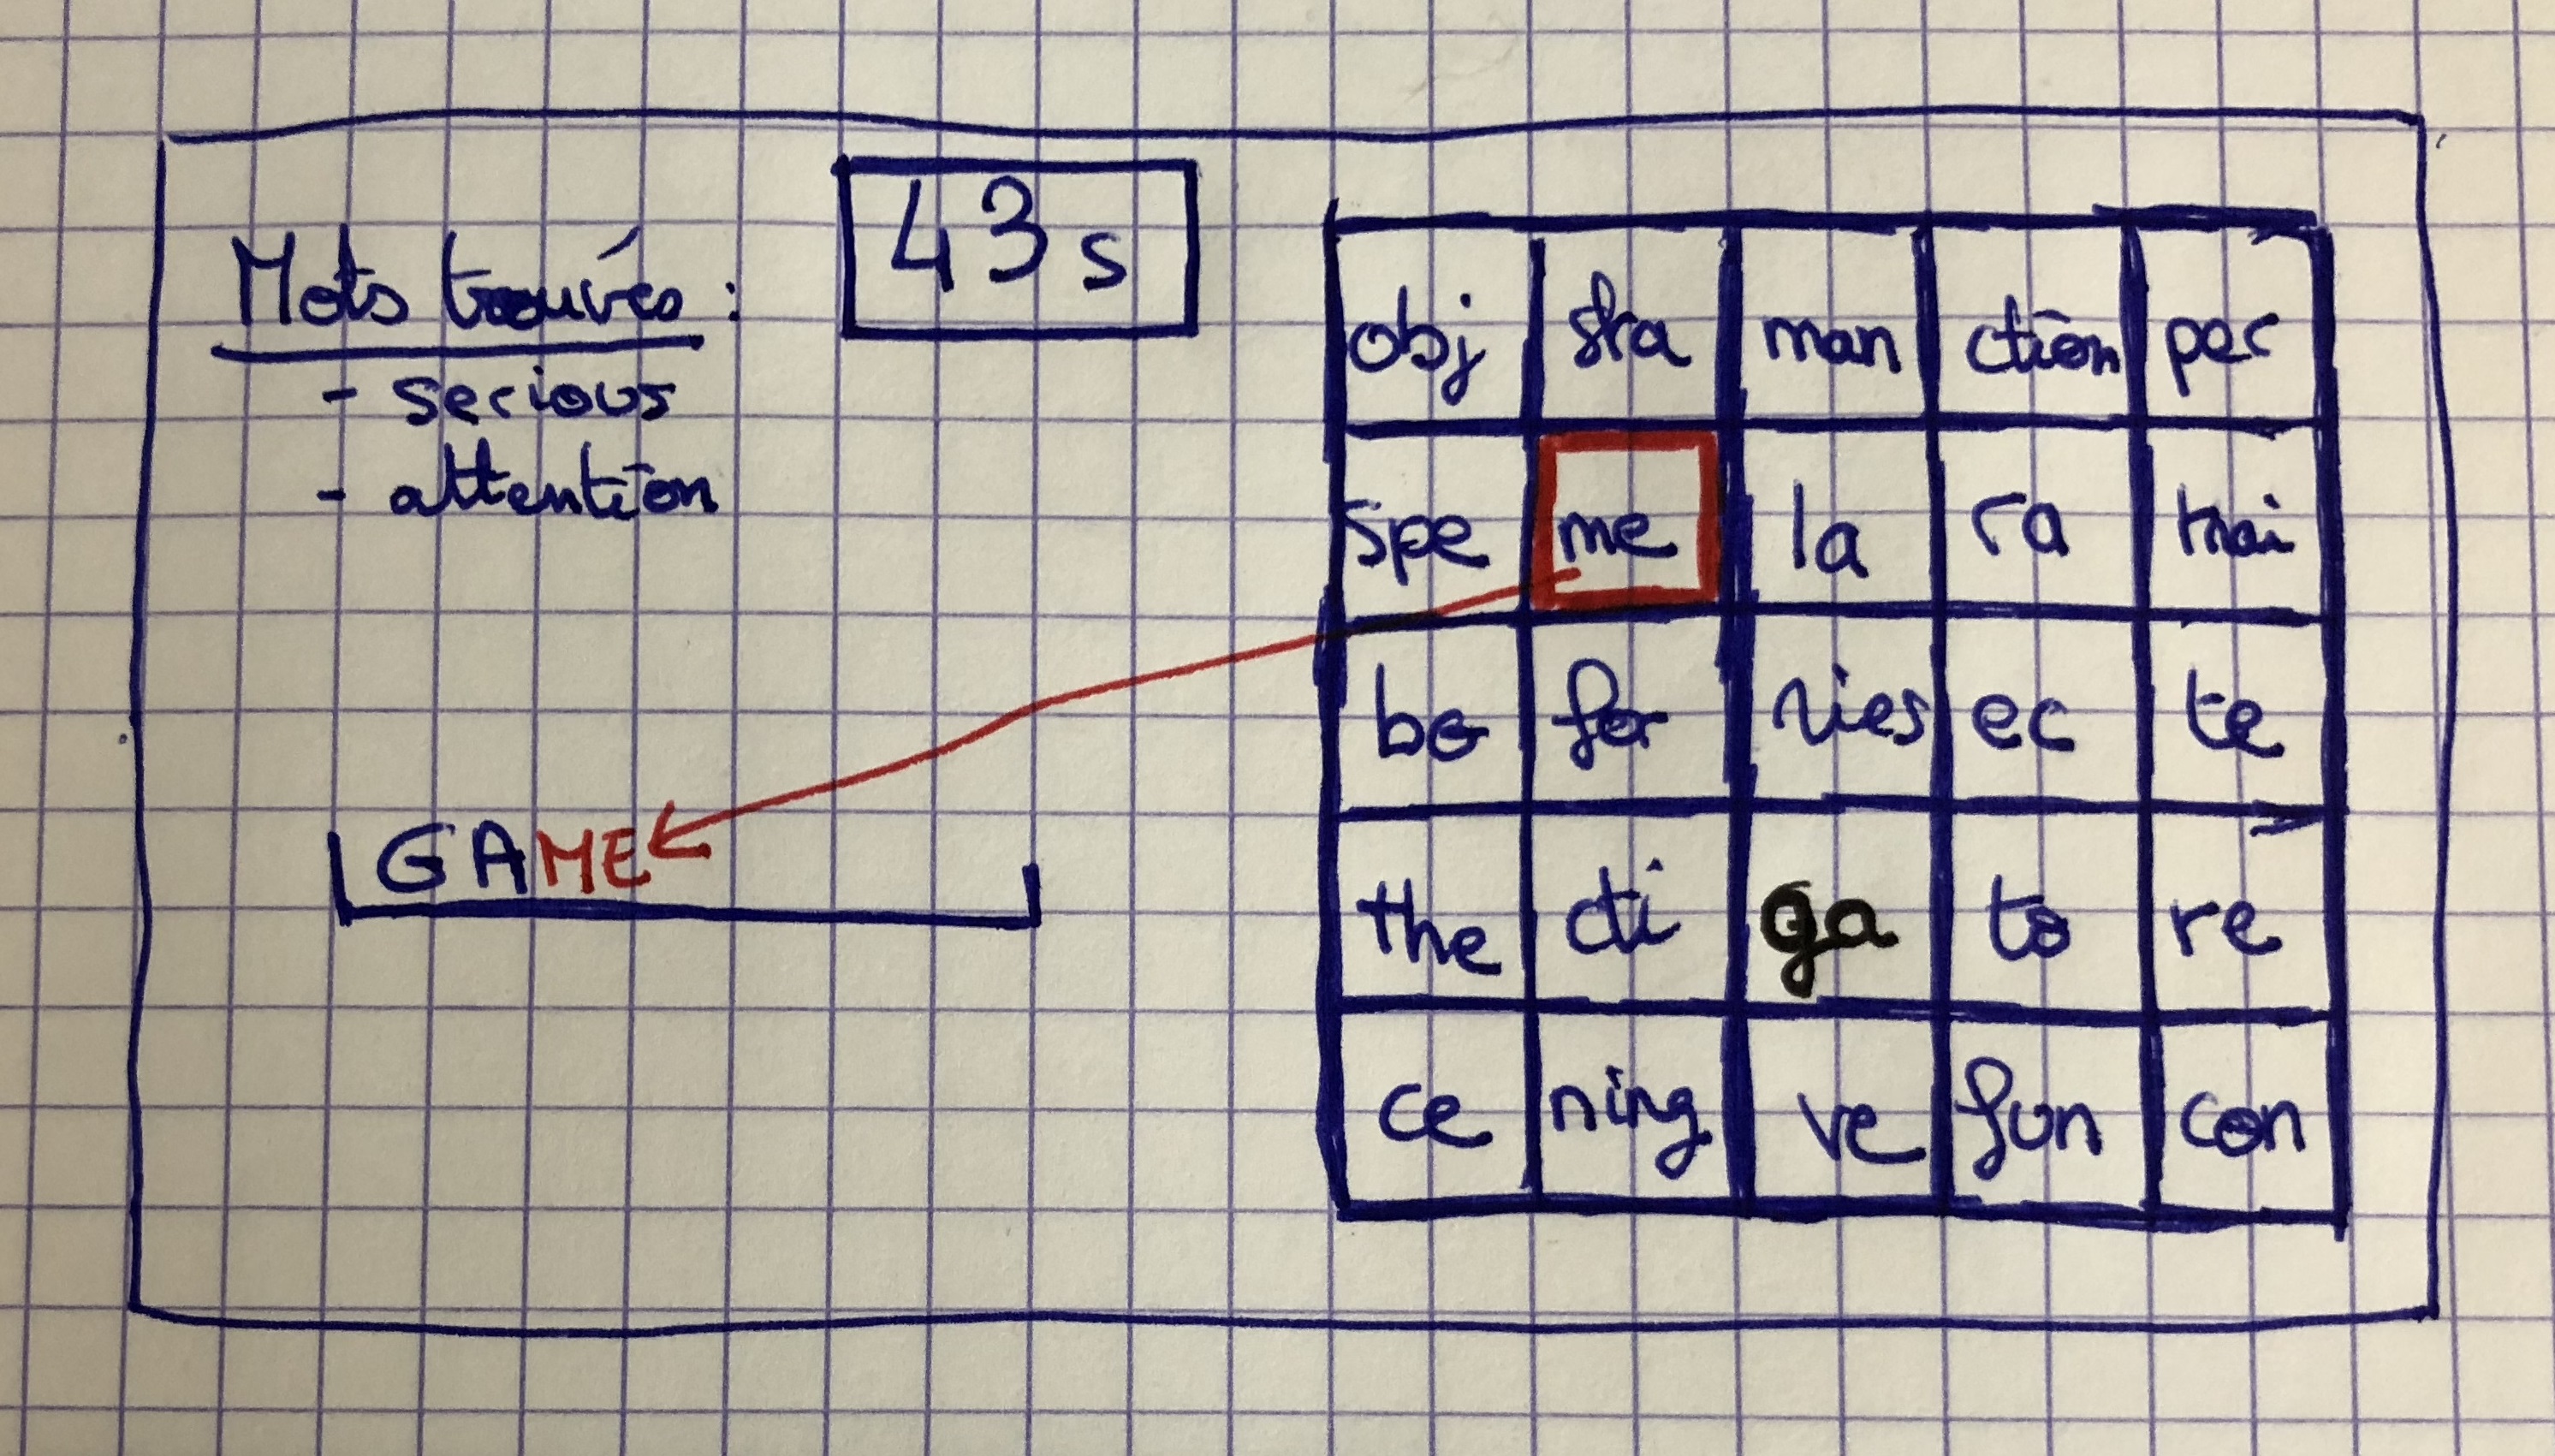 43s
Mots trouvés :
- serious
- attention
GAME
obj stra man ction per
spe me la ra trai
bo for ries ec te
the cti ga to re
ce ning ve fun con